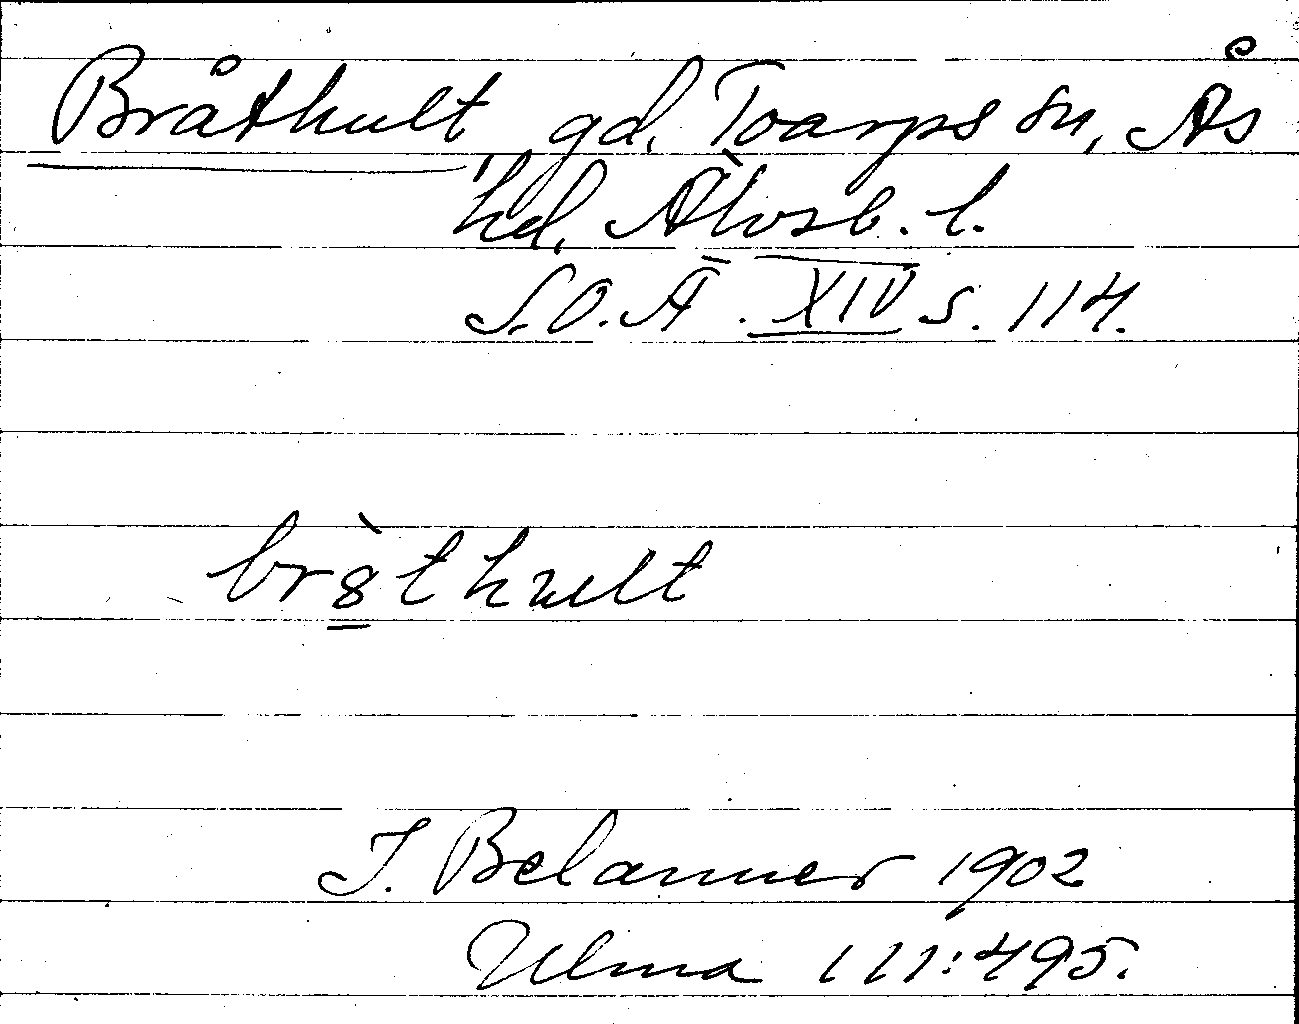 Bråthult, gd. Toarps sn, Ås
hd. Älvsb. l.
S.O.Ä. XIV s. 114.
br8̀thult
I. Belanner 1902
Ulma 111:495.